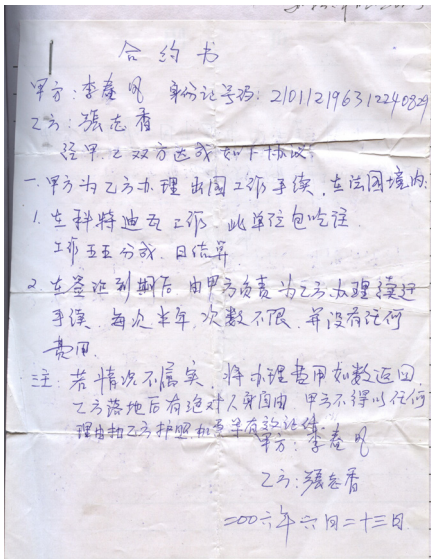 合约书
甲方：李春凤 身份证号码：210112196312240829
乙方：张志香
经甲、乙双方达成如下协议：
一.甲方为乙方办理出国工作手续，在法国境内：
1. 在科特迪瓦工作，此单位包吃住
工作五五分成，日结算
2. 在签证到期后，由甲方负责为乙方办理续延
手续，每次半年，次数不限，并没有任何
费用.
注：若情况不属实，将办理费用如数返回
乙方落地后有绝对人身自由，甲方不得以任何
理由扣乙方护照，机票等有效证件.
甲方：李春凤
乙方：张志香
二00六年六月二十三日